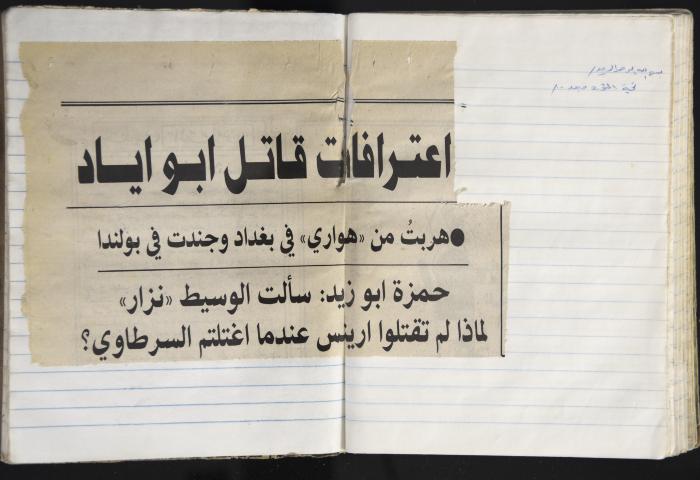 اعترافات قاتل ابو اياد
●هربتُ من «هواري» في بغداد وجندت في بولندا
حمزة ابو زيد: سألت الوسيط «نزار»
لماذا لم تقتلوا ارينس عندما اغتلتم السرطاوي؟